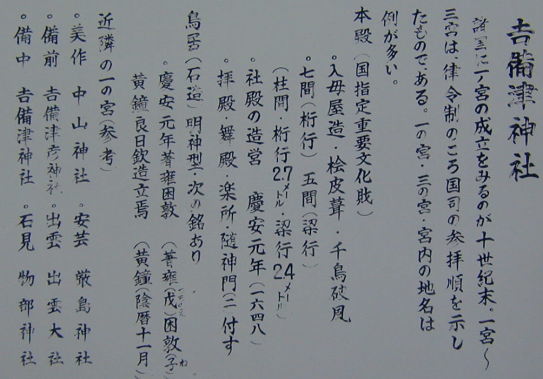 吉備津神社
諸国に一ノ宮の成立をみるのが十世紀末。一宮〜
三宮は律令制のころ国司の参拝順を示し
たものである。一の宮・三の宮・宮内の地名は
例が多い。
本殿(国指定重要文化財)
。入母屋造・桧皮葺・千鳥破風
。七間(桁行)五間(梁行)
(柱間・桁行2.7メートル・梁行2.4メートル)
。社殿の造営 慶安元年(一六四八)
。拝殿・舞殿・楽所・随神門(二)付す
鳥居(石造)明神型・次の銘あり
。慶安元年著雍困敦(著雍(戊)困敦(子)
黄鐘良日欽造立焉(黄鐘(陰暦十一月)
近隣の一の宮(参考)
。美作 中山神社 。安芸 厳島神社
。備前 吉備津彦神社 。出雲 出雲大社
。備中 吉備津神社 。石見 物部神社